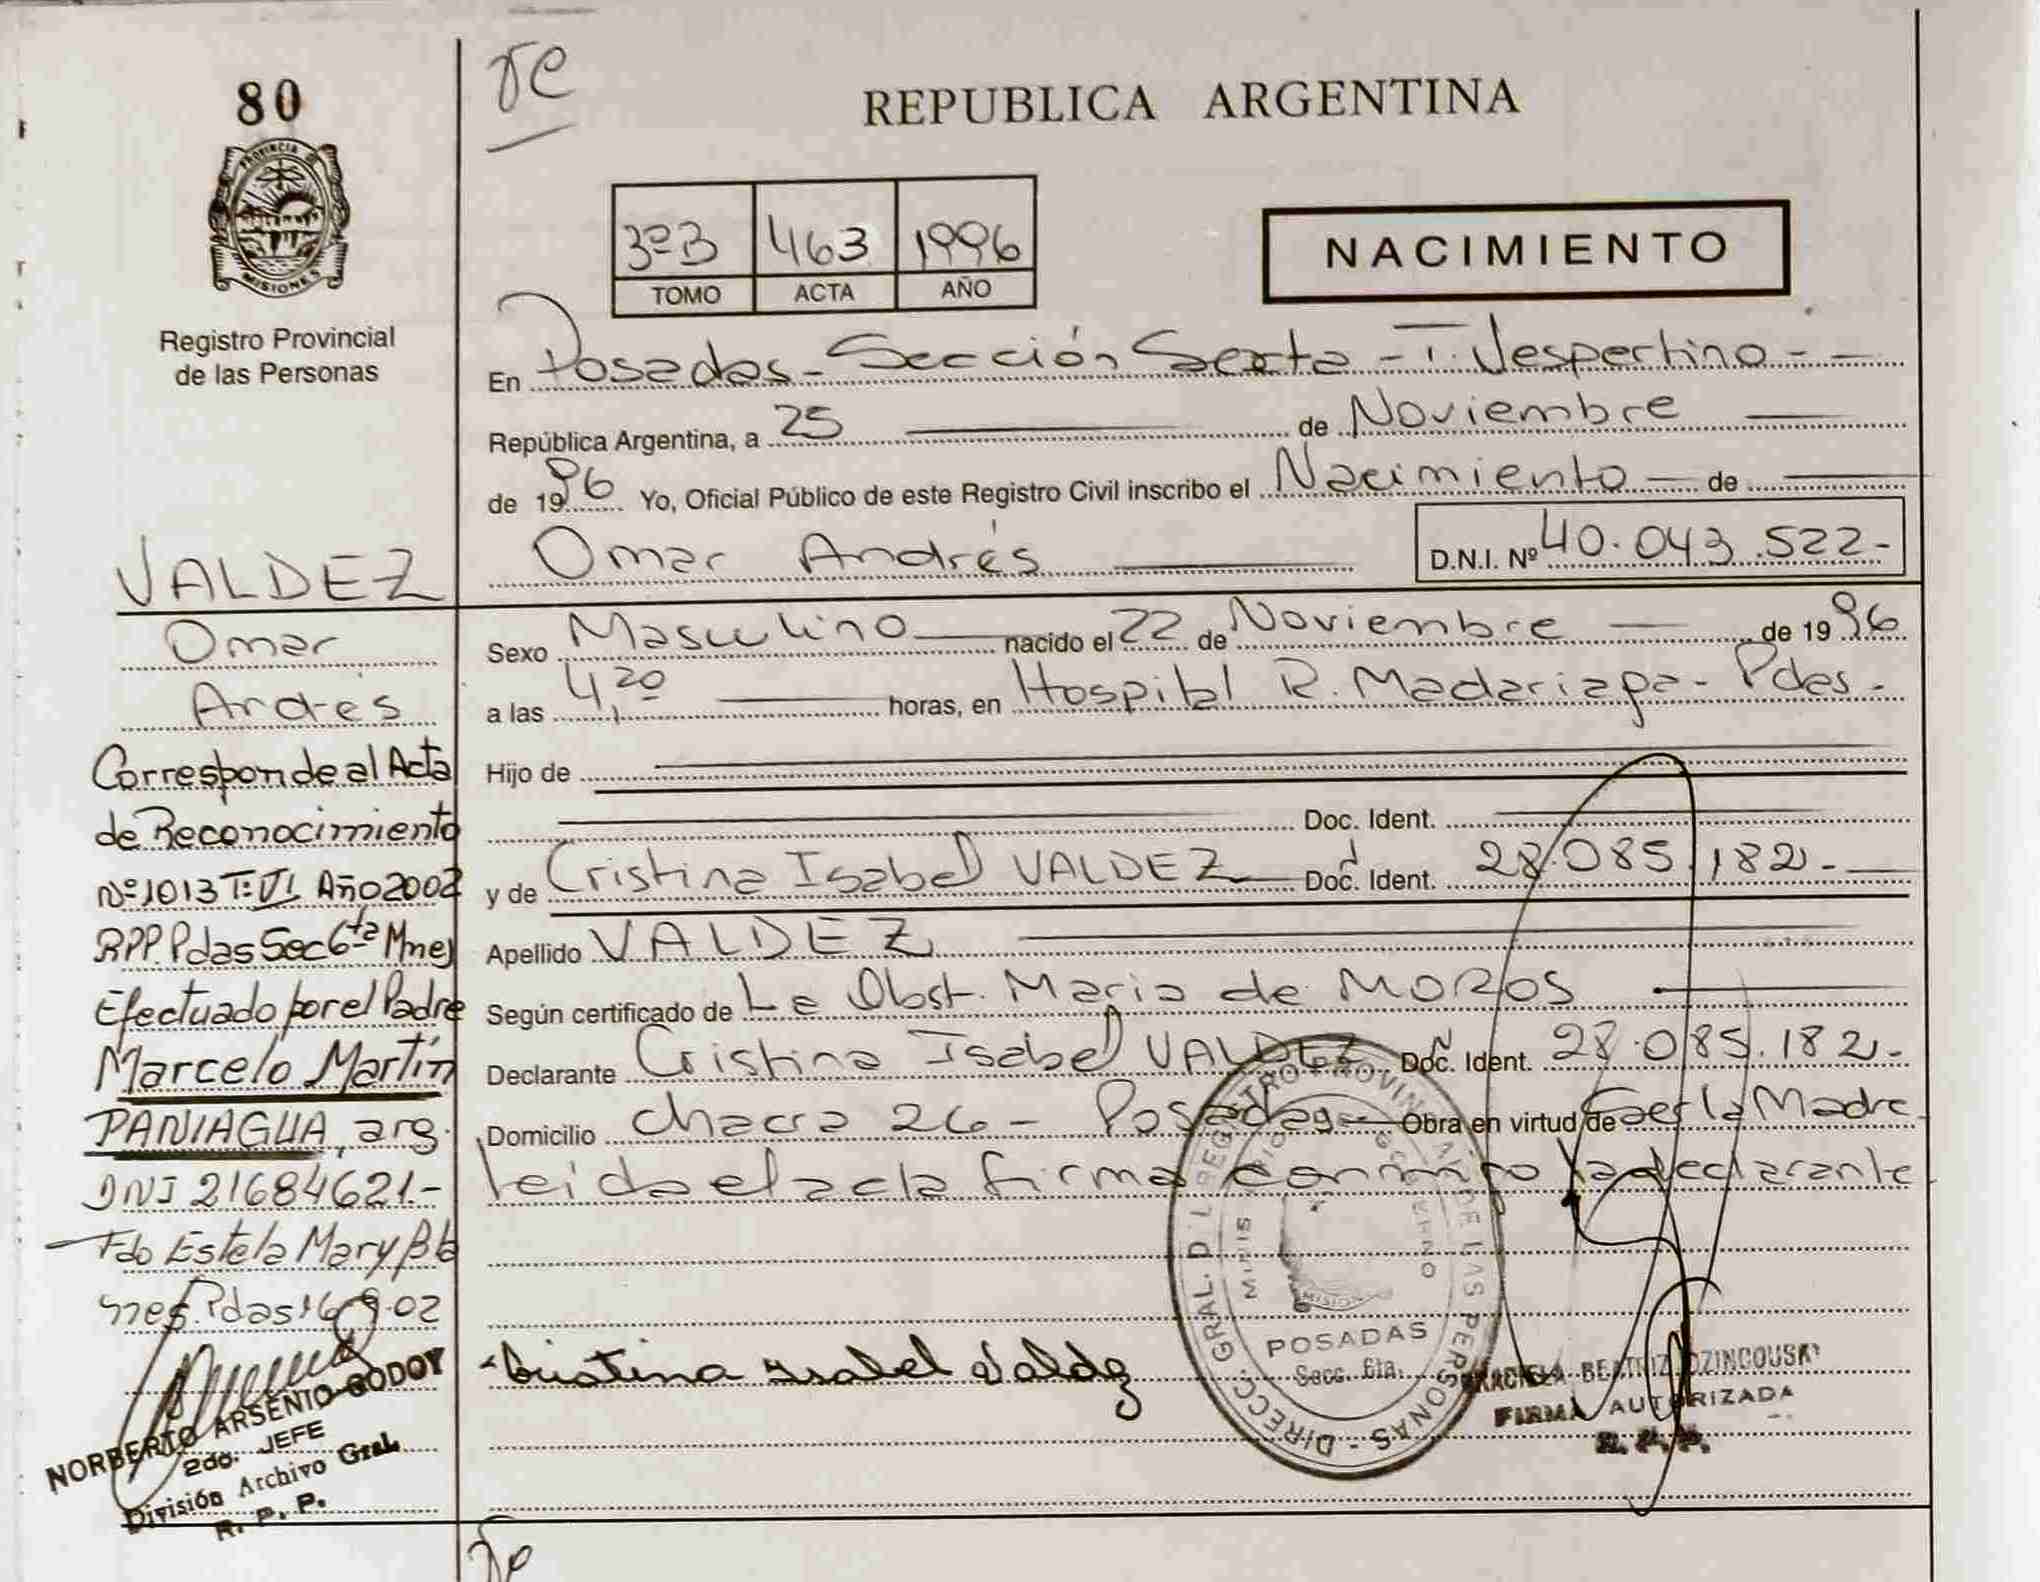 80
PROVINCIA D
MISIONES
Registro Provincial
de las Personas
VALDEZ
Omar
Andrés
Corresponde al Acta
de Reconocimiento
Nº 1013 T: VI Año 2002
RPP. Pdas Sec 6ta Mnes
Efectuado por el Padre
Marcelo Martín
PANIAGUA, arg.
DNI 21684621.-
Fdo Estela Mary
Mnes. Pdas 16 9-02
NORBERTO ARSENIO GODOY
2do. JEFE
División Archivo Gral.
R. P. P.
REPUBLICA ARGENTINA
3ºB 463 1996
TOMO ACTA AÑO
NACIMIENTO
En Posadas - Sección Sexta - T. Vespertino - -
República Argentina, a 25 de Noviembre
de 1996 Yo, Oficial Público de este Registro Civil inscribo el Nacimiento de
Omar Andrés D.N.I. Nº 40.043.522-
Sexo Masculino nacido el 22 de Noviembre de 1996
a las 4,20 horas, en Hospital R. Madariaga - Pdas -
Hijo de
Doc. Ident.
y de Cristina Isabel VALDEZ Doc. Ident. 28.085.182.-
Apellido VALDEZ
Según certificado de La Obst. Maria de MOROS
Declarante Cristina Isabel VALDEZ Doc. Ident. 28.085.182.-
Domicilio chacra 26 - Posadas - Obra en virtud de Ser la Madre
Leida el acta firma conmigo la declarante
DIRECC. GRAL. D L REGISTRO PROVINCIAL DE LAS PERSONAS -
MISIONES
POSADAS
Secc. 6ta.
Cristina Isabel Valdez
GRACIELA BEATRIZ
FIRMA AUTORIZADA
R. P. P.